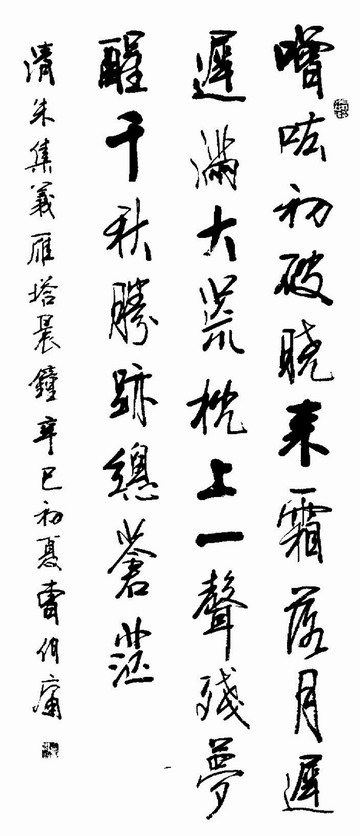 噌吰初破曉来霜落月遲
遲滿大荒枕上一聲殘夢
醒千秋勝跡總蒼茫
清朱集義雁塔晨鐘辛巳初夏曹伯庸